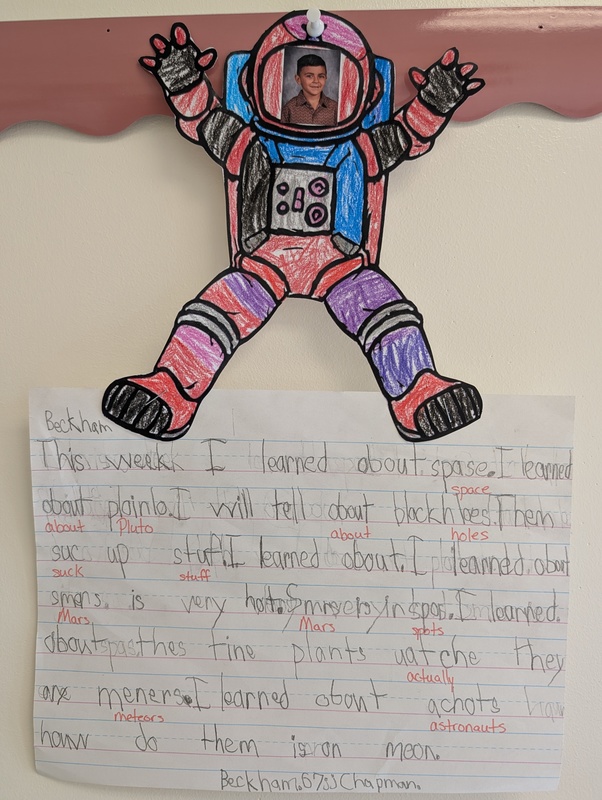 Beckham
This weekk I learned about spase. I learned
space
about plainlo. I will tell about blackhlees. Them
about Pluto about holes
suc up stuf. I learned about. I learned about
suck stuff
smars. is very hot. Smrs in spos. I learned.
Mars Mars spots
about thes tine plants uatche they
actually
are meners. I learned about achots
meteors astronauts
haw do them is on moon.
Beckham. Chapman.